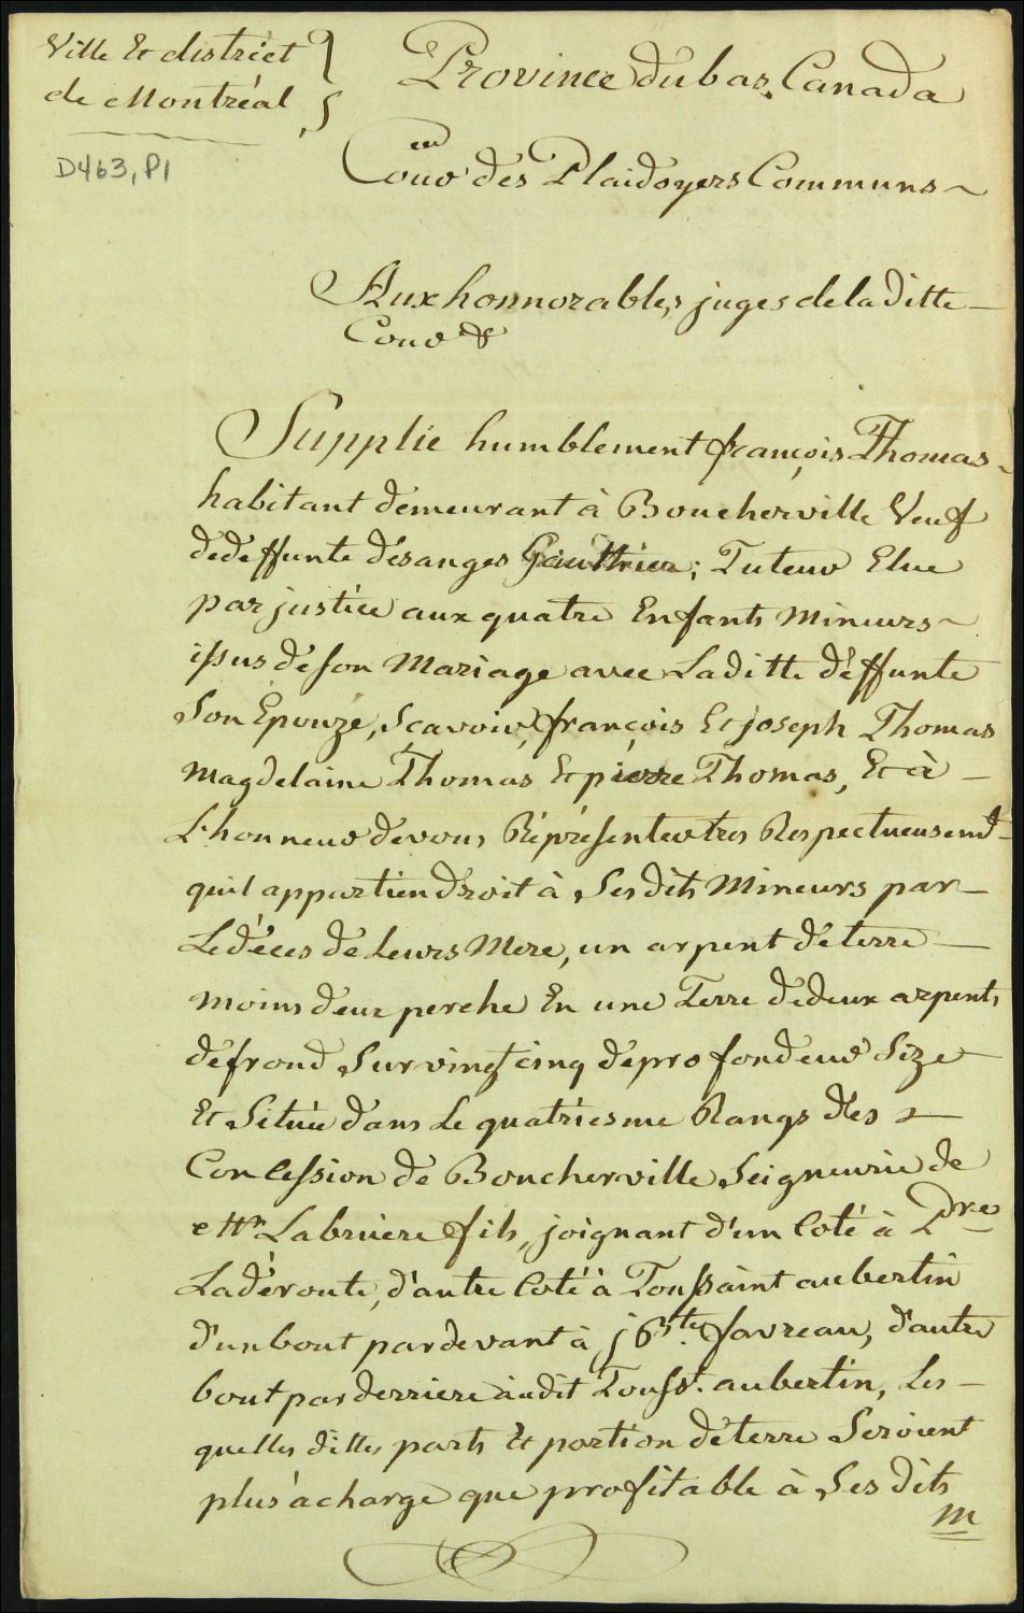 Ville & district
de Montréal
D463, P1
Province du bas Canada
en
Cour des Plaidoyers Communs
Aux honnorables juges de la ditte
Cour &
Supplie humblement françois Thomas
habitant demeurant à Boucherville Veuf
de deffunte désanges Gauthier; Tuteur Elue
par justice aux quatre Enfants Mineurs
issus de son Mariage avec La ditte déffunte
Son Epouze, Scavoir, françois Et joseph Thomas
Magdelaine Thomas Et pierre Thomas, Et à
L'honneur de vous Réprésenter tres Respectueusemt
qu'il appartiendroit à Ses dits Mineurs par
Le déces de Leurs Mere, un arpent de terre
moins d'eux perche En une Terre de deux arpents
de frond Sur vingt cinq de profondeur Size
Et Située dans Le quatriesme Rangs des
Concession de Boucherville Seigneurie de
Mr. Labruere fils, joignant d'un Coté à Pre
Ladéroute, d'autre Coté à Toussaint aubertin
d'un bout par devant à j Bte. favreau, d'autre
bout par derriere audit Touss. aubertin, Les
quelles dittes parts Et portion de terre Seroient
plus à charge que profitable à Ses dits
M